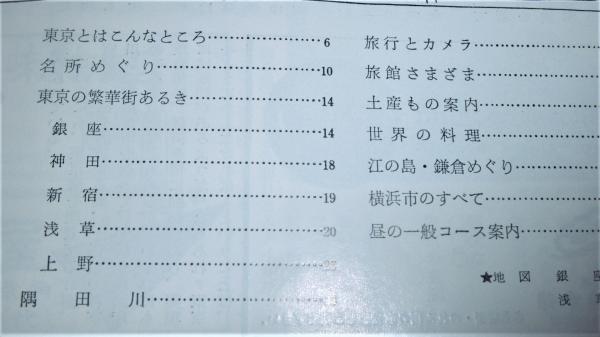 東京とはこんなところ……………………6
名所めぐり……………………………10
東京の繁華街あるき…………………14
銀座……………………………………14
神田……………………………………18
新宿……………………………………19
浅草……………………………………20
上野……………………………………
隅田川…………………………………
旅行とカメラ……………
旅館さまざま……………
土産もの案内……………
世界の料理………………
江の島・鎌倉めぐり……
横浜市のすべて…………
昼の一般コース案内……
★地図 銀座
浅草